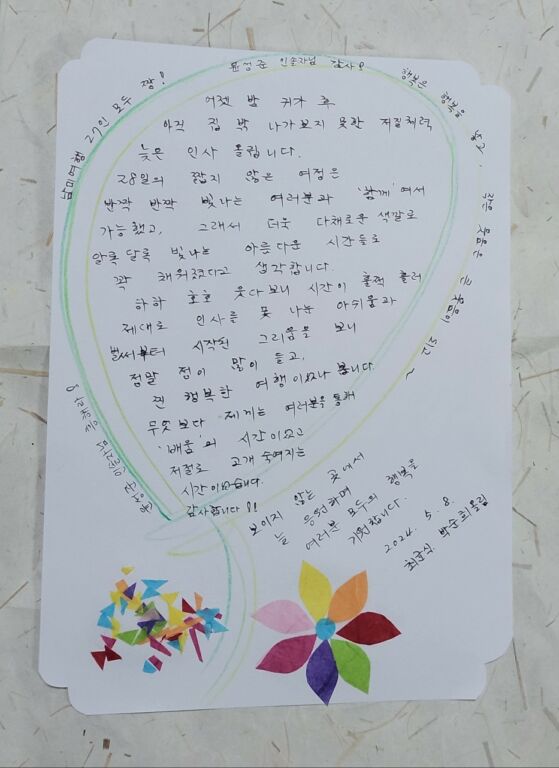 윤성준 인솔자님 감사!
남미여행 27인 모두 짱!
행복은 행복을 낳고
어젯밤 귀가 후
아직 집 밖 나가보지 못한 저질체력
늦은 인사 올립니다.
28일의 짧지 않은 여정은
반짝 반짝 빛나는 여러분과 '함께'여서
가능했고, 그래서 더욱 다채로운 색깔로
알록달록 빛나는 아름다운 시간들로
꽉 채워졌다고 생각합니다.
하하 호호 웃다보니 시간이 훌쩍 흘러
제대로 인사를 못 나눈 아쉬움과
벌써부터 시작된 그리움을 보니
정말 정이 많이 들고,
찐 행복한 여행이었나 봅니다.
무엇보다 제게는 여러분을 통해
'배움'의 시간이었고
저절로 고개 숙여지는
시간이었습니다.
감사합니다!!
보이지 않는 곳에서
늘 응원하며
여러분 모두의 행복을
기원합니다.
2024. 5. 8.
최규식, 박순희 올림